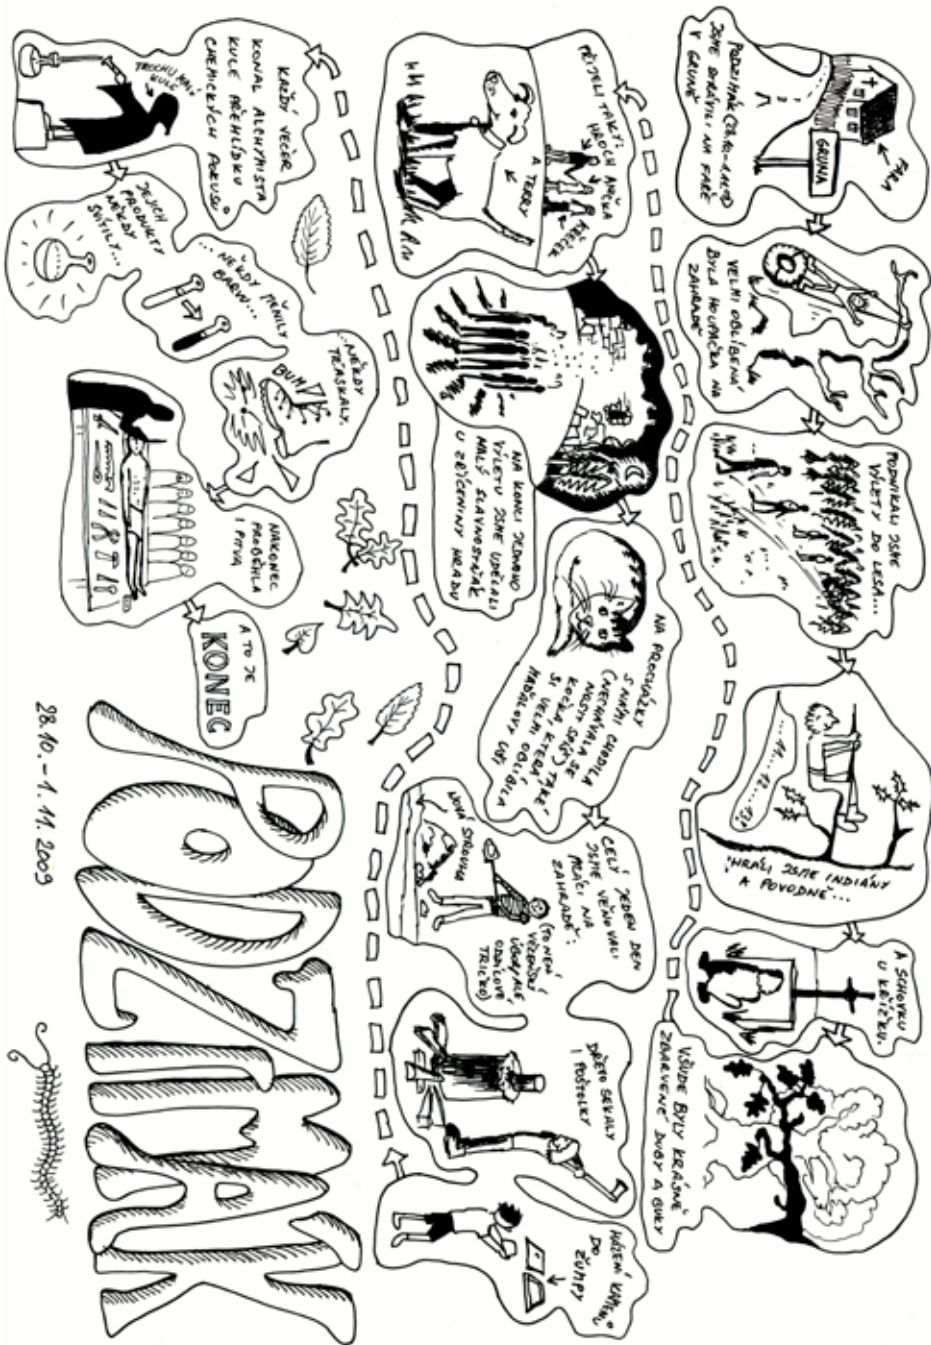 FARA
GRUNA
PODZIMÁK (28.10.-1.11.)
JSME STRÁVILI NA FAŘE
V GRUNĚ
VELMI OBLÍBENÁ
BYLA HOUPAČKA NA
ZAHRADĚ
PODNIKALI JSME
VÝLETY DO LESA...
...11...12...13!
HRÁLI JSME INDIÁNY
A POVODNĚ...
A SCHOVKU
U KŘÍŽKU.
VŠUDE BYLY KRÁSNĚ
ZBARVENÉ DUBY A BUKY
PŘIJELI TAKY:
HROCH ANIČKA
KŘEČEK
A TERRY
NA KONCI JEDNOHO
VÝLETU JSME UDĚLALI
MALÝ SLAVNOSTŇÁK
U ZŘÍCENINY HRADU
NA PROCHÁZKY
S NÁMI CHODILA
TAKÉ
KOČKA
KTERÁ
SI VELMI OBLÍBILA
CELÝ JEDEN DEN
JSME VĚNOVALI
PRÁCI NA
ZAHRADĚ:
(TO NENÍ
VĚZEŇSKÝ
ÚBOR, ALE
ODDÍLOVÉ
TRIČKO)
NOVÁ STROUHA
DŘEVO SEKALY
I POŠTOLKY
HÁZENÍ KAMENŮ
DO ŽUMPY
KAŽDÝ VEČER
KONAL ALCHYMISTA
KULE PŘEHLÍDKU
CHEMICKÝCH POKUSŮ
TROCHU MALÝ
KULE
JEJICH
PRODUKTY
NĚKDY
SVÍTILY...
...NĚKDY MĚNILY
BARVU...
...NĚKDY
TŘASKALY.
BUM
NAKONEC
PROBĚHLA
I PITVA
A TO JE
KONEC
PODZIMÁK
28.10. - 1. 11. 2009